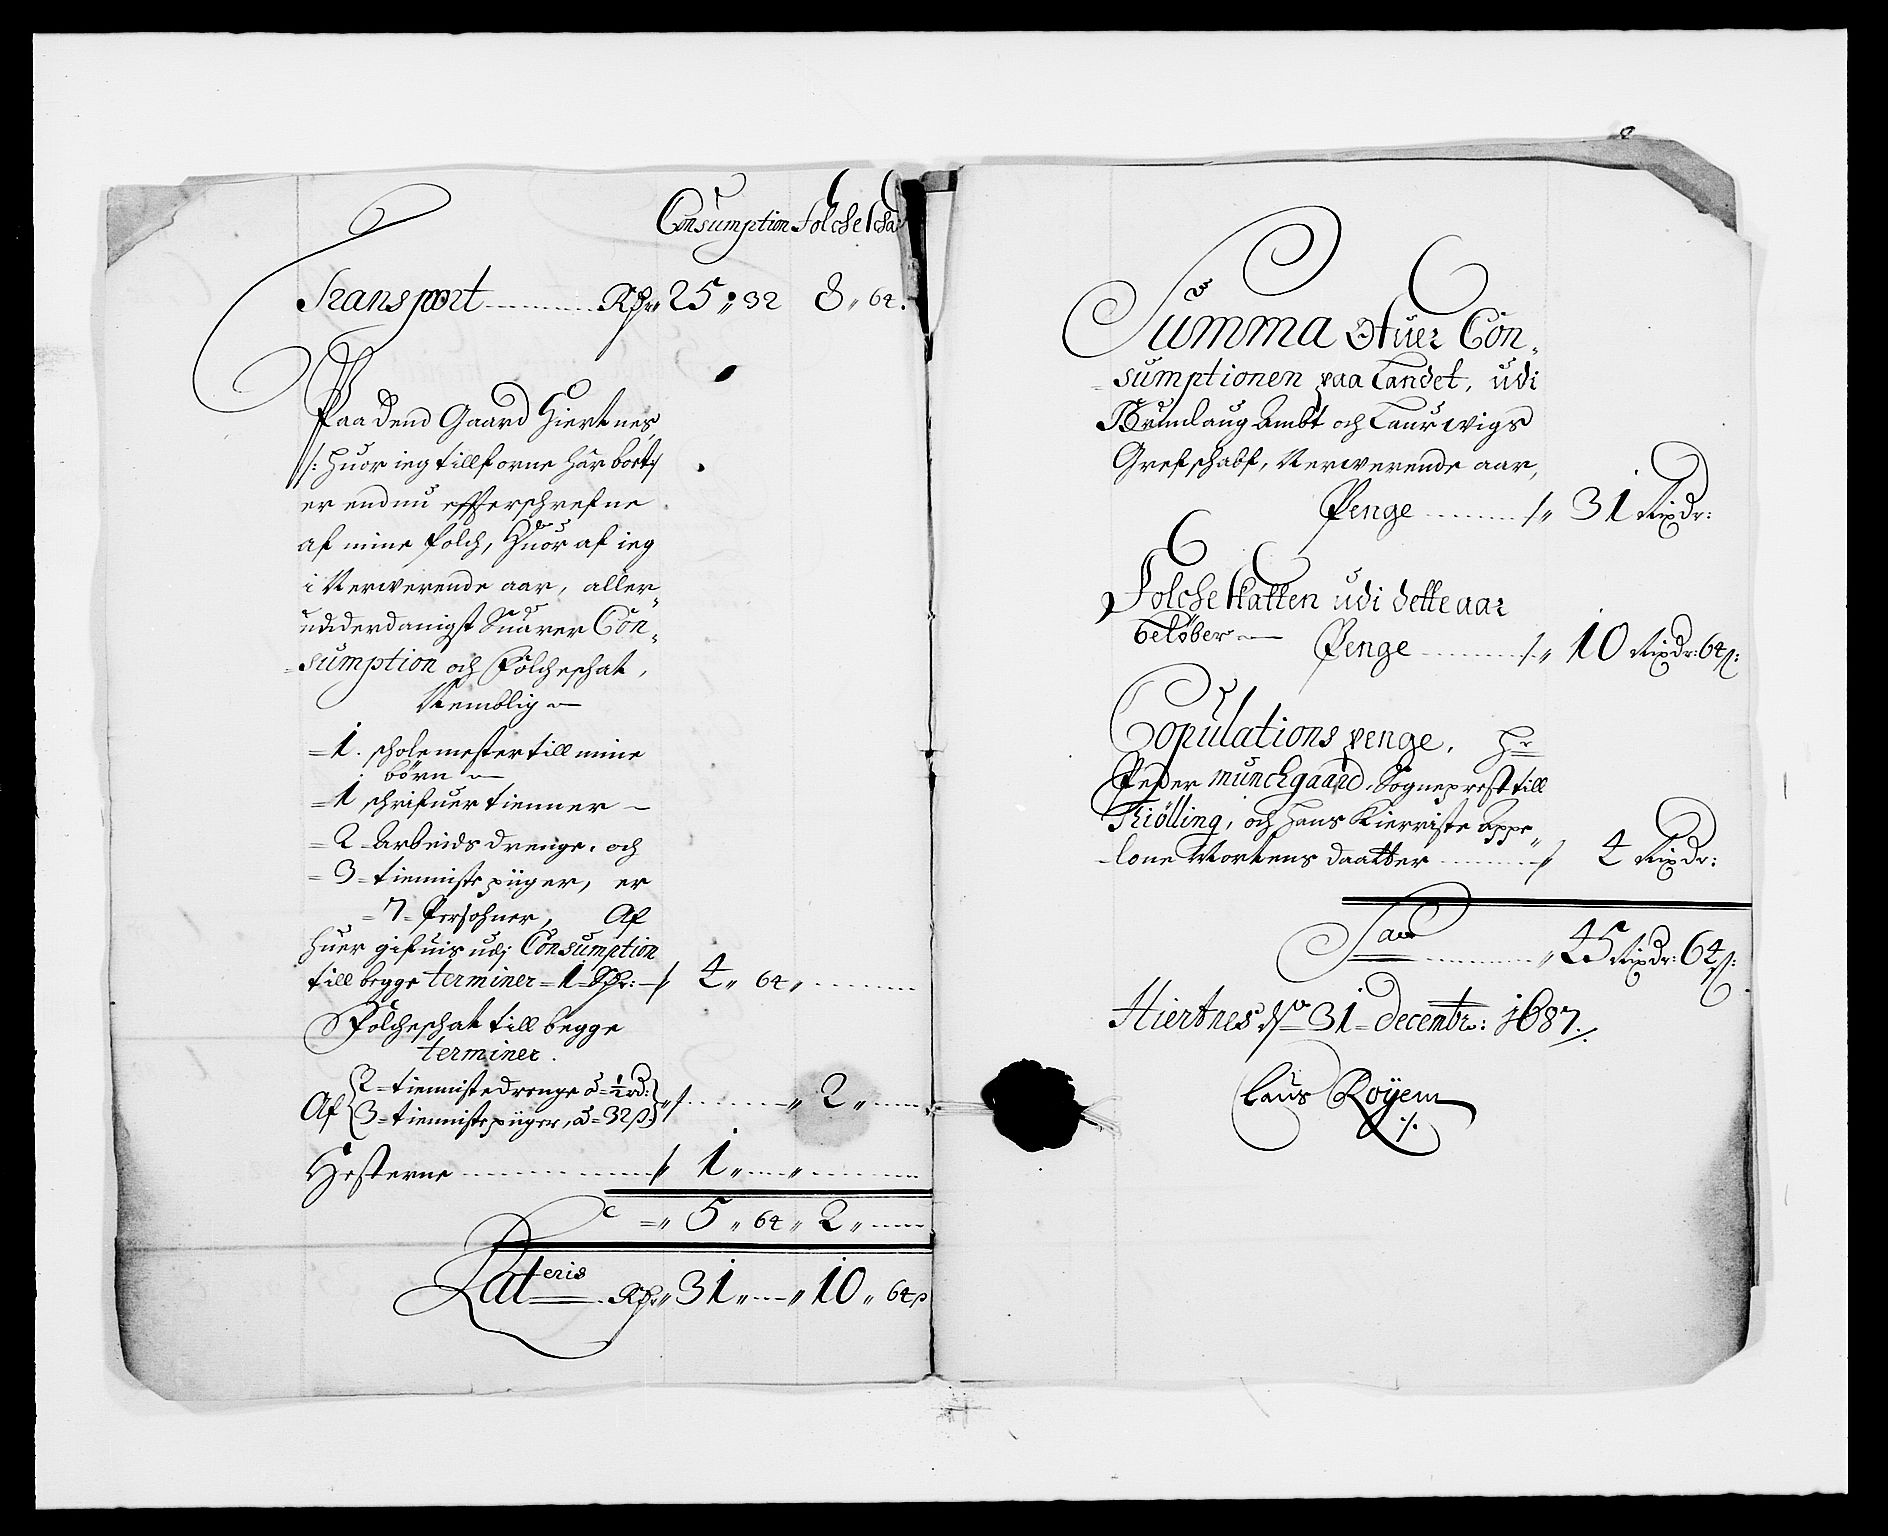 Consumption Folche Scha
Transport ---- Rdr 25 " 32 8 " 64.
Paa dend Gaard Hiertnes,
/: Huor ieg tillforne har boet :/
er endnu effterschrefne
af mine folch, Huor af ieg
i Nerwerende aar, aller„
udderdanigst Suarer Con„
sumption och Folcheschat,
Nemblig
1. scholemester till mine
børn
1 schrifuer tienner
2 Arbeids drenge, och
3 tienniste piiger, er
7 Persohner, Af
huer gifuis udj Consumption
till begge terminer = 1 = Sp: // 4 " 64 "
Folcheschat till begge
terminer.
Af 2 = tienniste drenge á = ½ rd:
3 = tienniste piiger, á = 32 β: " 2 "
Hesterne // 1 " "
" 5 " 64 " 2 "
Lateris Rdr " 31 " " 10 " 64 β
Summa Ofuer Con„
sumptionen paa Landet, udi
Brunlaug Ambt och Laurwigs
Grefschabf, Nerwerende aar,
Penge /" 31 Rixdr:
Folche skatten udi dette aar
beløber
Penge /" 10 Rixdr: 64 β:
Copulations penge, Hr
Peder Munchgaard, Sogneprest till
Kiølling, och Hans Kierriste Appe„
lone Mortens daatter // 4 Rixdr:
Sam " 45 Rixdr: 64 β:
Hiertnes ds 31 decembr: 1687 ./
Claus Røyem
./.